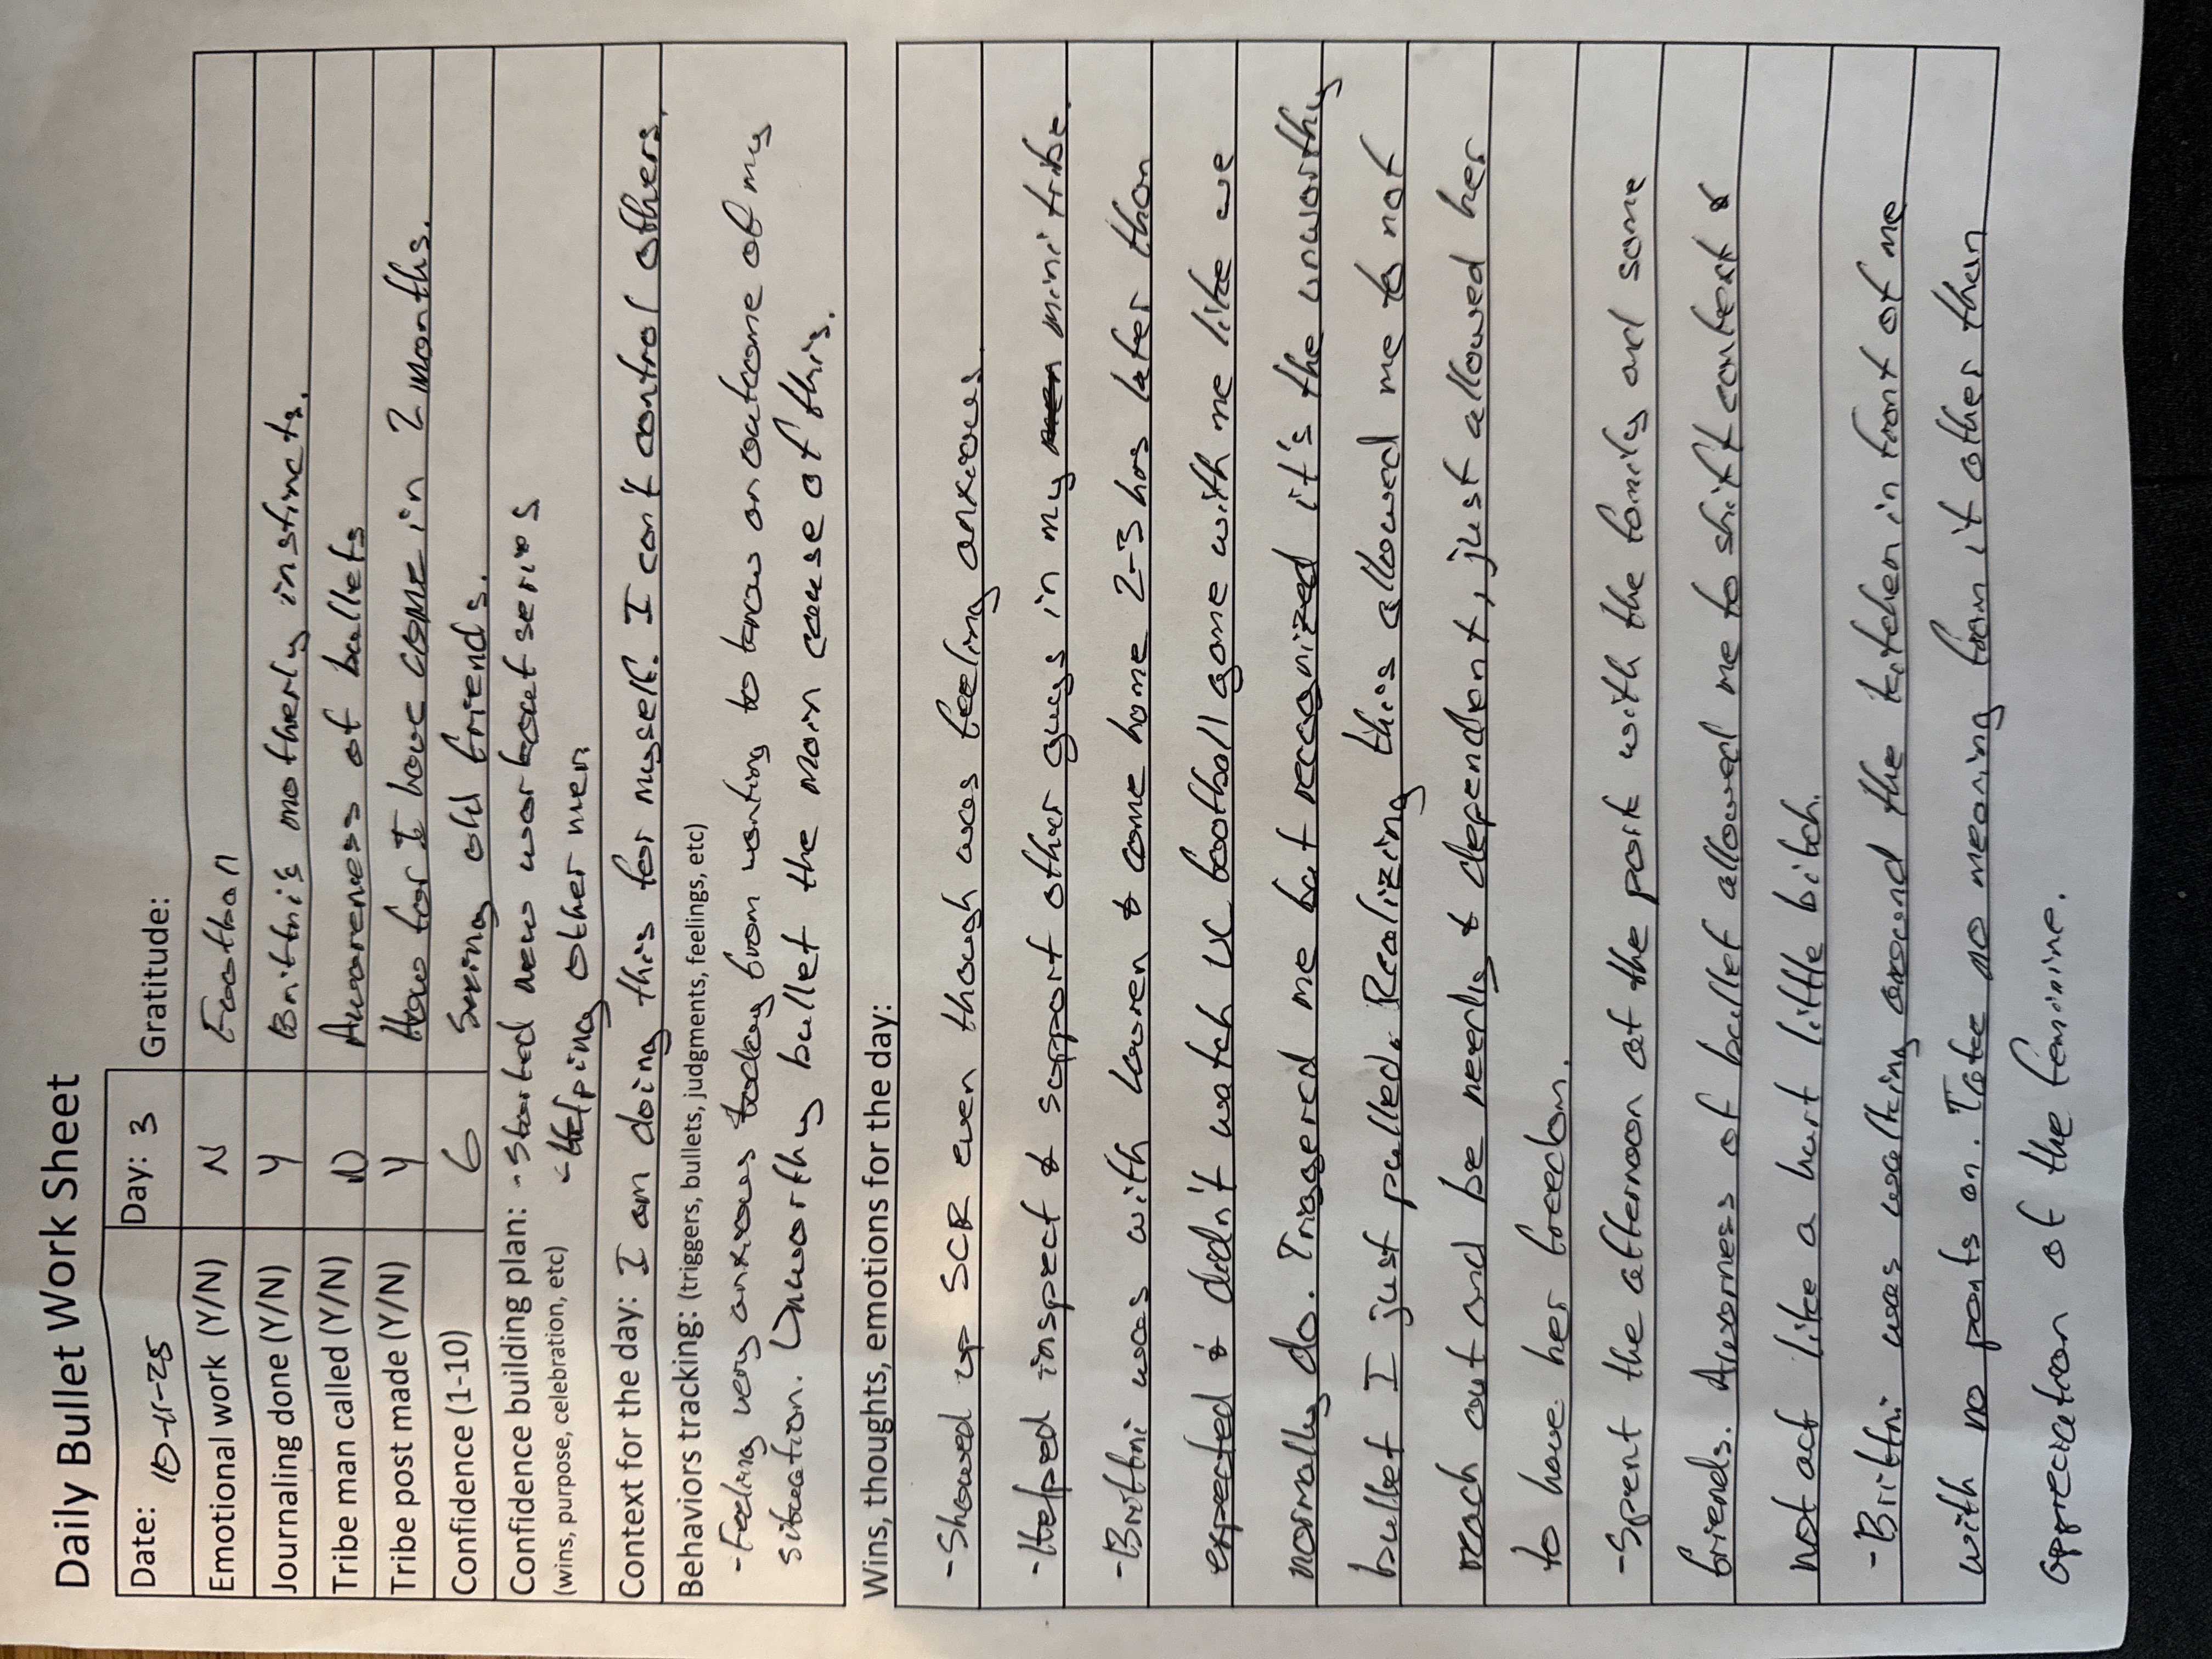 Daily Bullet Work Sheet
Date: 10-11-25 Day: 3 Gratitude:
Emotional work (Y/N) N Football
Journaling done (Y/N) Y Brittni's motherly instincts.
Tribe man called (Y/N) N Awareness of bullets
Tribe post made (Y/N) Y How far I have come in 2 months.
Confidence (1-10) 6 Seeing old friends.
Confidence building plan: - Started new workout series
(wins, purpose, celebration, etc) - Helping other men
Context for the day: I am doing this for myself. I can't control others.
Behaviors tracking: (triggers, bullets, judgments, feelings, etc)
- Feeling very anxious today from wanting to know an outcome of my
situation. Unworthy bullet the main cause of this.
Wins, thoughts, emotions for the day:
- Showed up SCR even though was feeling anxious.
- Helped inspect & support other guys in my mini tribe.
- Brittni was with Lauren & came home 2-3 hrs later than
expected & didn't watch UC football game with me like we
normally do. Triggered me but recognized it's the unworthy
bullet I just pulled. Realizing this allowed me to not
reach out and be needy & dependent, just allowed her
to have her freedom.
- Spent the afternoon at the park with the family and some
friends. Awareness of bullet allowed me to shift context &
not act like a hurt little bitch.
- Brittni was walking around the kitchen in front of me
with no pants on. Take no meaning from it other than
appreciation of the feminine.